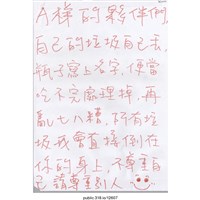 A梯的夥伴們,
自己的垃圾自己丟,
瓶子寫上名字,便當
吃不完處理掉,再
亂七八糟,所有垃
圾我會直接倒在
你的身上,不尊重自
己請尊重別人
public.318.io/10607